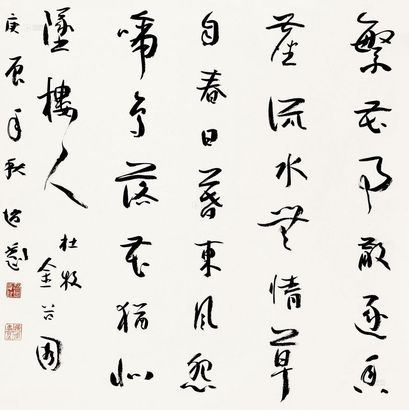 繁花事散逐香
塵流水無情草
自春日暮東風怨
啼鳥落花猶似
墜樓人
杜牧
金谷園
庚辰年秋